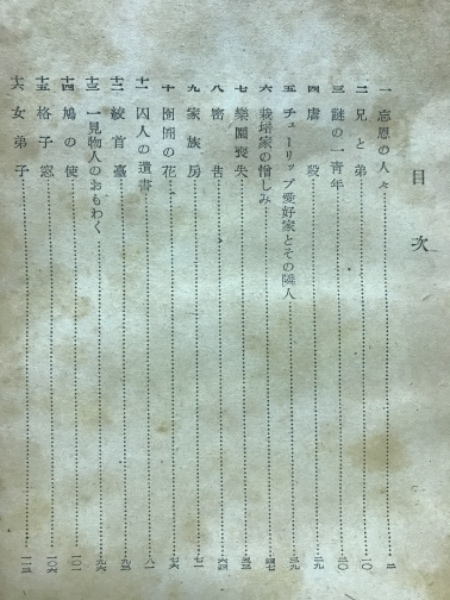 目次
一 忘恩の人々 二
二 兄と弟 一〇
三 謎の一青年 二〇
四 虐殺 二九
五 チューリップ愛好家とその隣人 三九
六 栽培家の憎しみ 四七
七 樂園喪失 五三
八 密告 六四
九 家族房 七一
十 囹圄の花 七六
十一 囚人の遺書 八一
十二 絞首臺 九三
十三 一見物人のおもわく 九六
十四 鳩の使 一〇一
十五 格子窓 一〇六
十六 女弟子 一一三